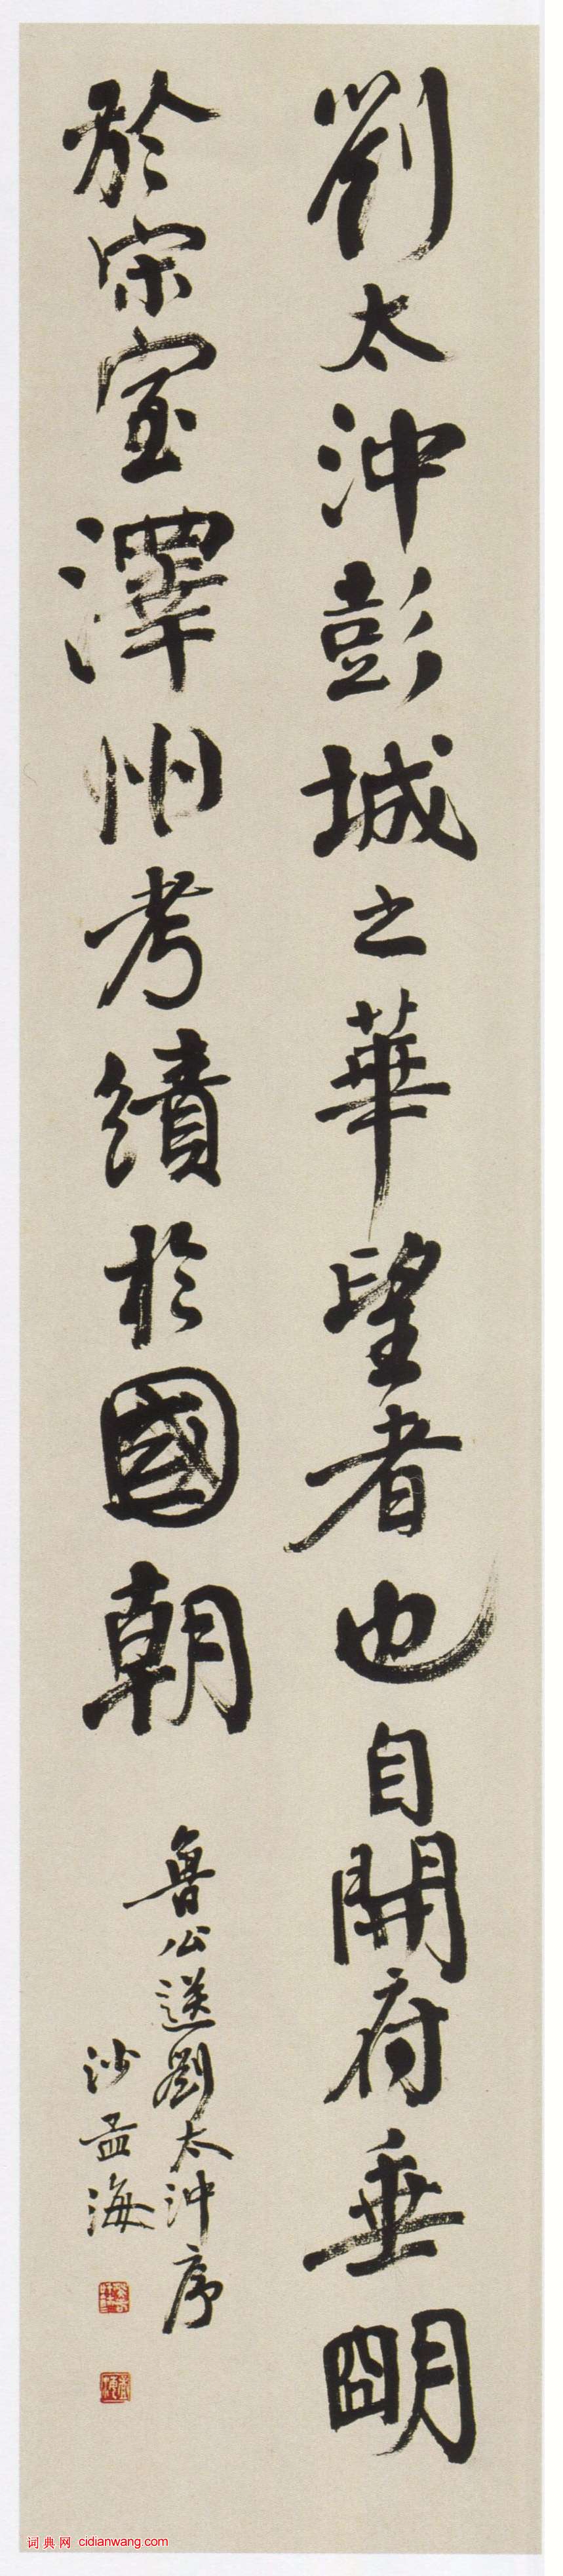 劉太沖彭城之華望者也自開府垂朙
於宋室澤州考績於國朝
魯公送劉太沖序
沙孟海
词典网 cidianwang.com